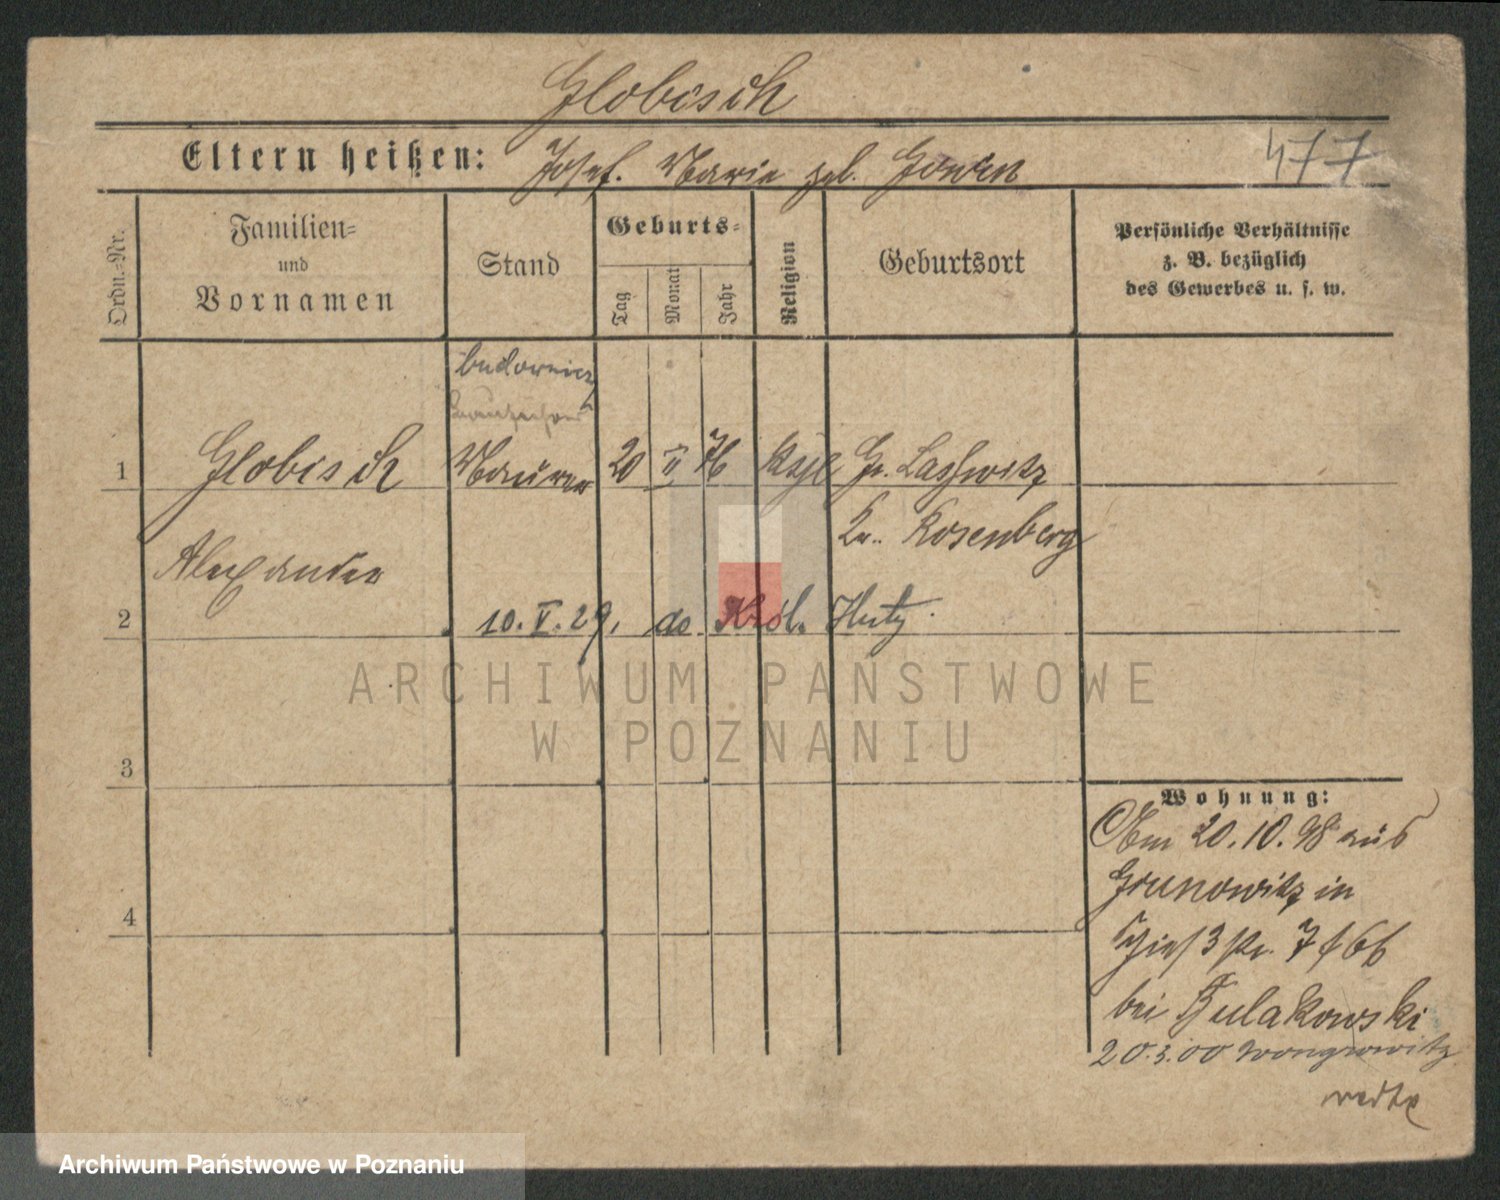 Globisch
Eltern heißen: Josef. Marie geb.
477
Ordn.=Nr.
Familien=
und
Vornamen
Stand
Geburts=
Tag
Monat
Jahr
Religion
Geburtsort
Persönliche Verhältnisse
z. B. bezüglich
des Gewerbes u. s. w.
budowniczy
1 Globisch Maurer 20 II 76 Gr. Lasswitz
Kr. Rosenberg
Alexander
2 10. V. 29. do Król. Huty.
ARCHIWUM PAŃSTWOWE
W POZNANIU
3
Wohnung:
20.10.98 aus
Grunowitz in
4
bei Bulakowski
20.3.00 Wongrowitz
Archiwum Państwowe w Poznaniu